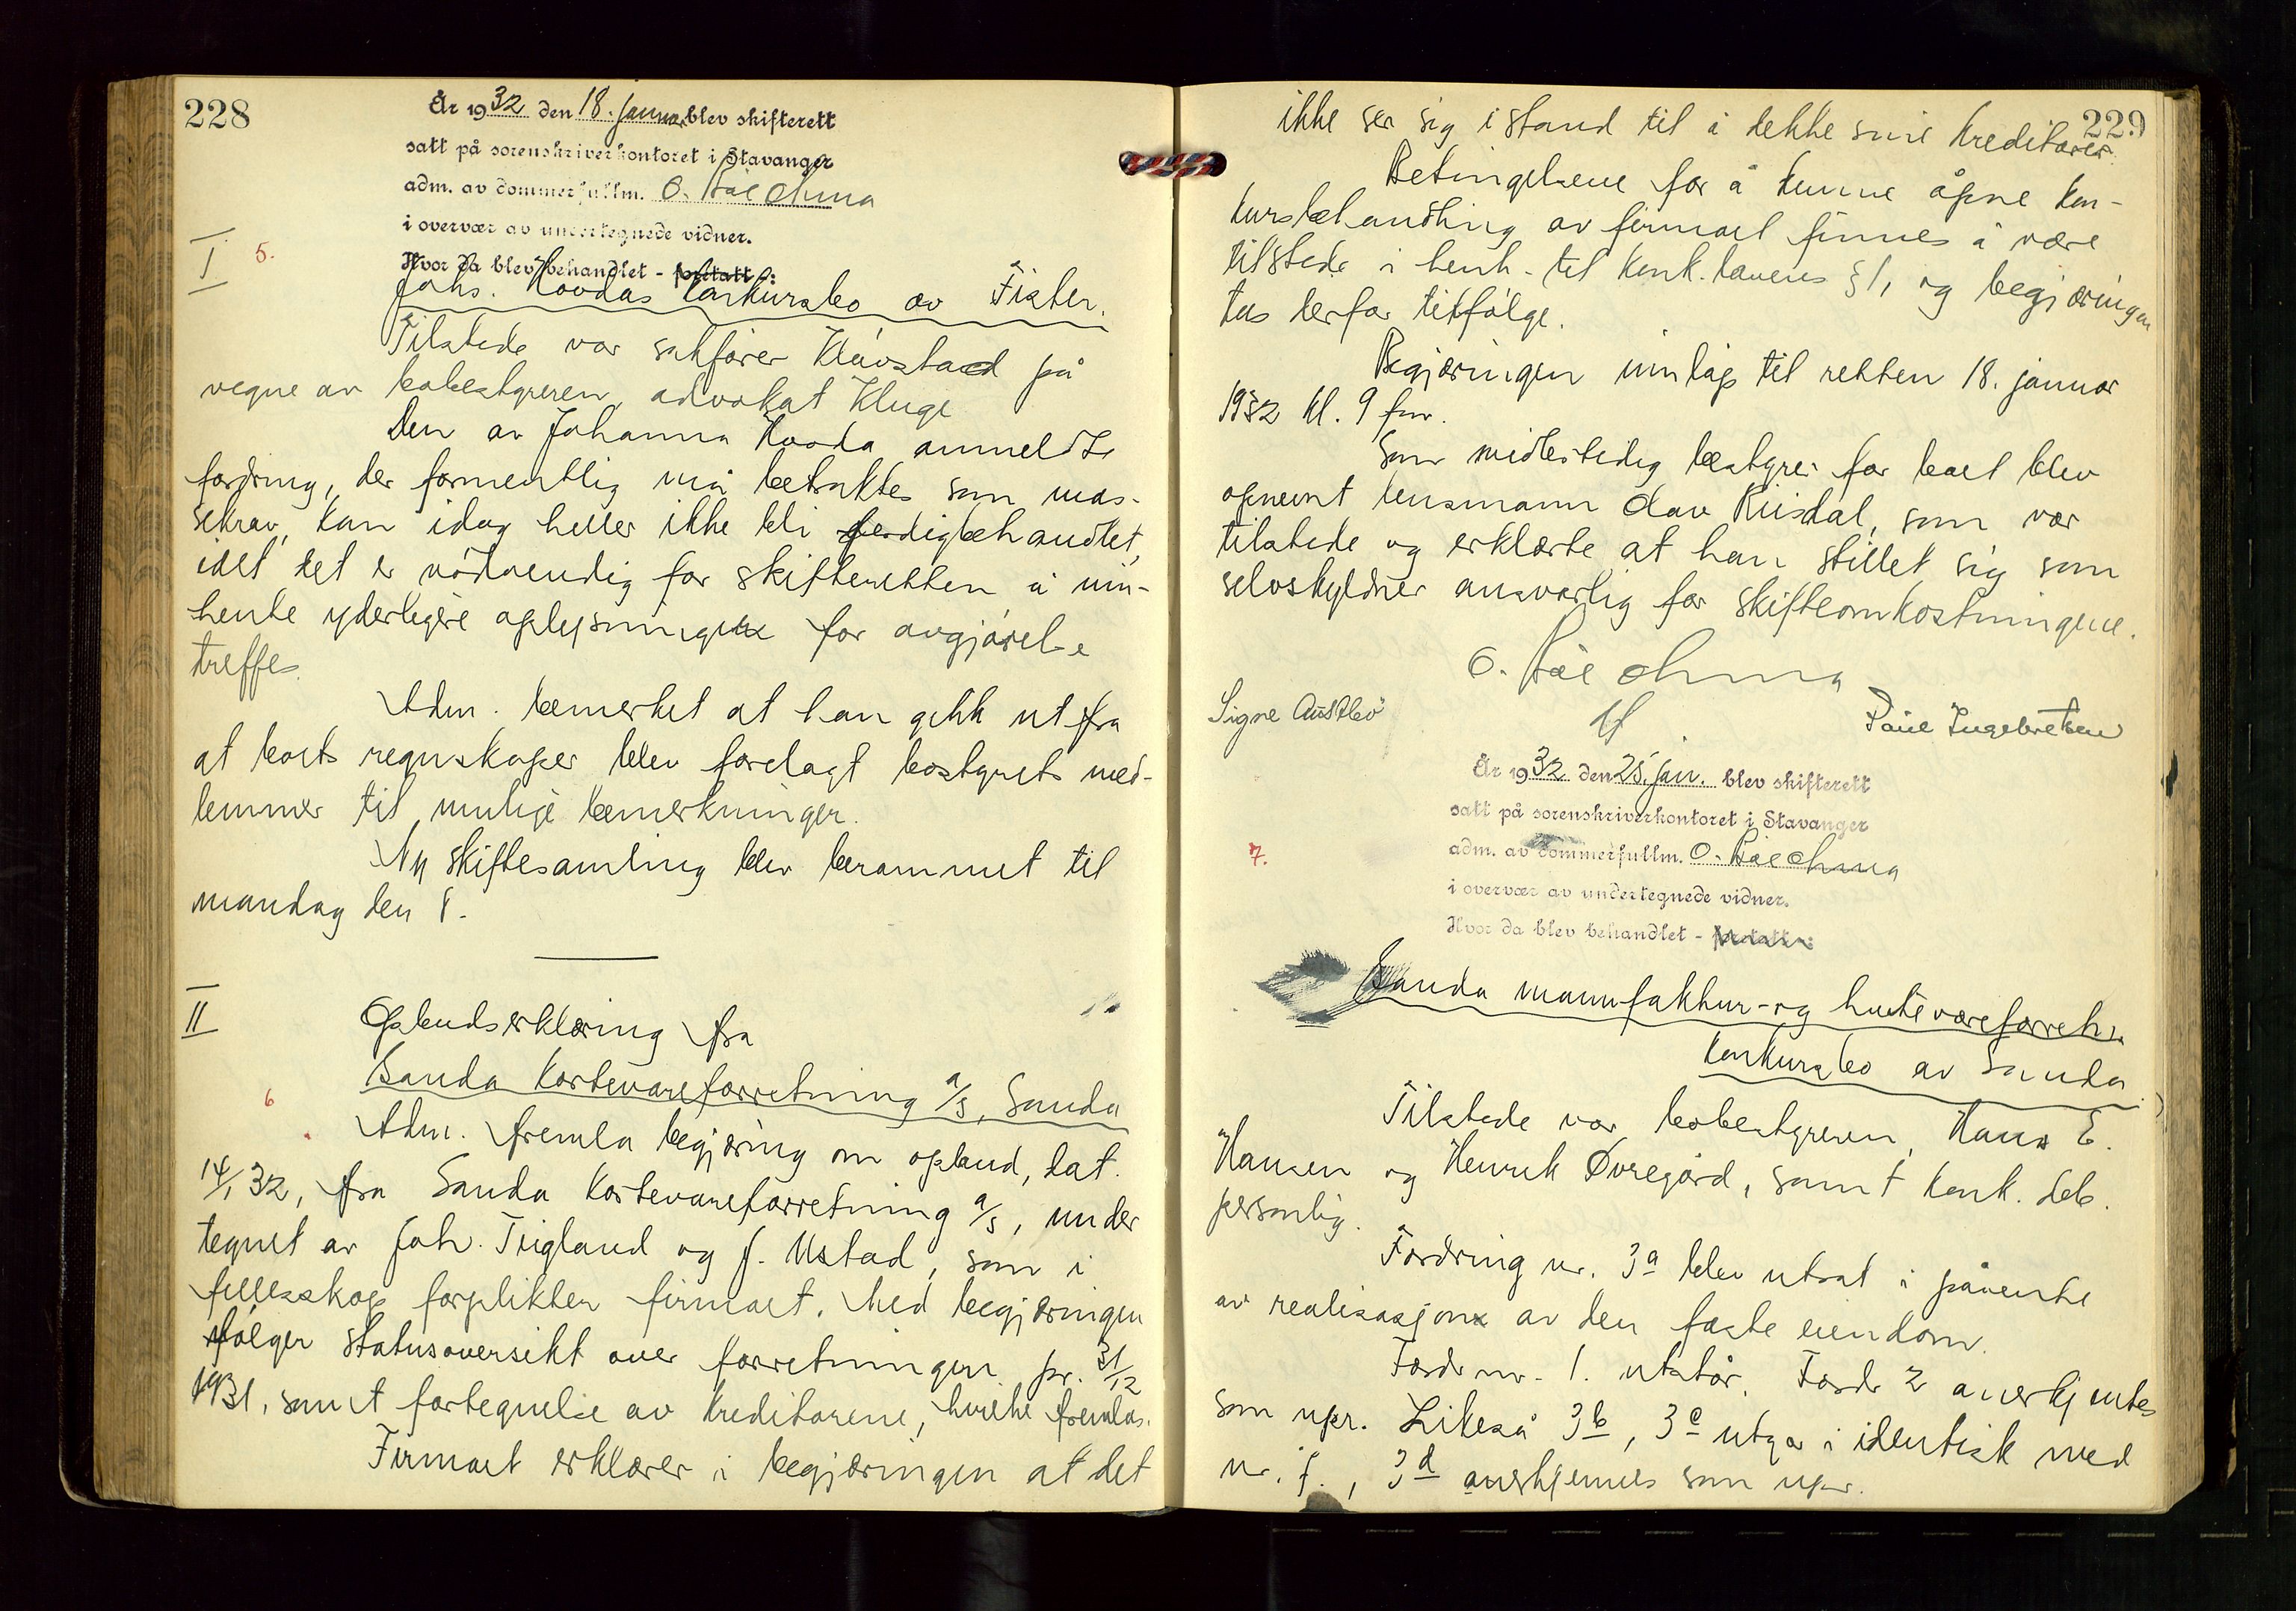 228
År 1932 den 18. januar blev skifterett
satt på sorenskriverkontoret i Stavanger
adm. av dommerfullm. O. Röe
i overvær av undertegnede vidner.
Hvor da blev behandlet - fortatt:
I 5.
Johs. Hovdas konkursbo av Fister.
Tilstede var sakfører Kluvstad på
vegne av bobestyreren, advokat Kluge
Den av Johanna Hovda anmeldte
fordring, der formentlig må betraktes som mas-
sekrav, kan idag heller ikke bli ferdigbehandlet,
idet det er nödvendig for skifteretten å inn-
hente yderligere oplysninger for avgjörelse
treffes.
Adm. bemerket at han gikk ut fra
at boets regnskaper blev forelagt bostyrets med-
lemmer til mulige bemerkninger.
Ny skiftesamling blev berammet til
mandag den 8.
II
Opbudserklæring fra
6
Sanda Kortevareforretning a/s, Sanda
Adm. fremla begjæring om opbud, dat.
14/1 32, fra Sanda Kortevareforretning a/s, under
tegnet av Joh. Tigland og J. Ustad, som i
fellesskap forplikter firmaet. Med begjæringen
fölger statusoversikt over forretningen pr. 31/12
1931, samt fortegnelse av kreditorene, hvilke fremlas.
Firmaet erklærer i begjæringen at det
229
ikke ser sig istand til å dekke sine kreditorer.
Betingelsene for å kunne åpne kon-
kursbehandling av firmaet finnes å være
tilstede i henh. til konk.lovens §1, og begjæringen
tas derfor tilfölge.
Begjæringen innkom til retten 18. januar
1932 kl. 9 fm.
Som midlertidig bestyrer for boet blev
opnevnt lensmann Olav Riisdal, som var
tilstede og erklærte at han stillet sig som
selvskyldner ansvarlig for skifteomkostningene.
O. Röe
Signe Austbö
Paul Ingebretsen
År 1932 den 25. jan. blev skifterett
satt på sorenskriverkontoret i Stavanger
7.
adm. av dommerfullm. O. Röe
i overvær av undertegnede vidner.
Hvor da blev behandlet - fortatt:
Sanda manufaktur- og hvitevareforretn.
konkursbo av Sanda
Tilstede var bobestyreren, Hans E.
Hansen og Henrik Øvregård, samt konk. deb.
personlig.
Fordring nr. 3a blev utsat i påvente
av realisasjon av den faste eiendom.
Fordr nr. 1. utstår. Fordr 2 anerkjentes
som upr. Likeså 3b, 3c utgår i identisk med
nr. f., 3d anerkjennes som upr.